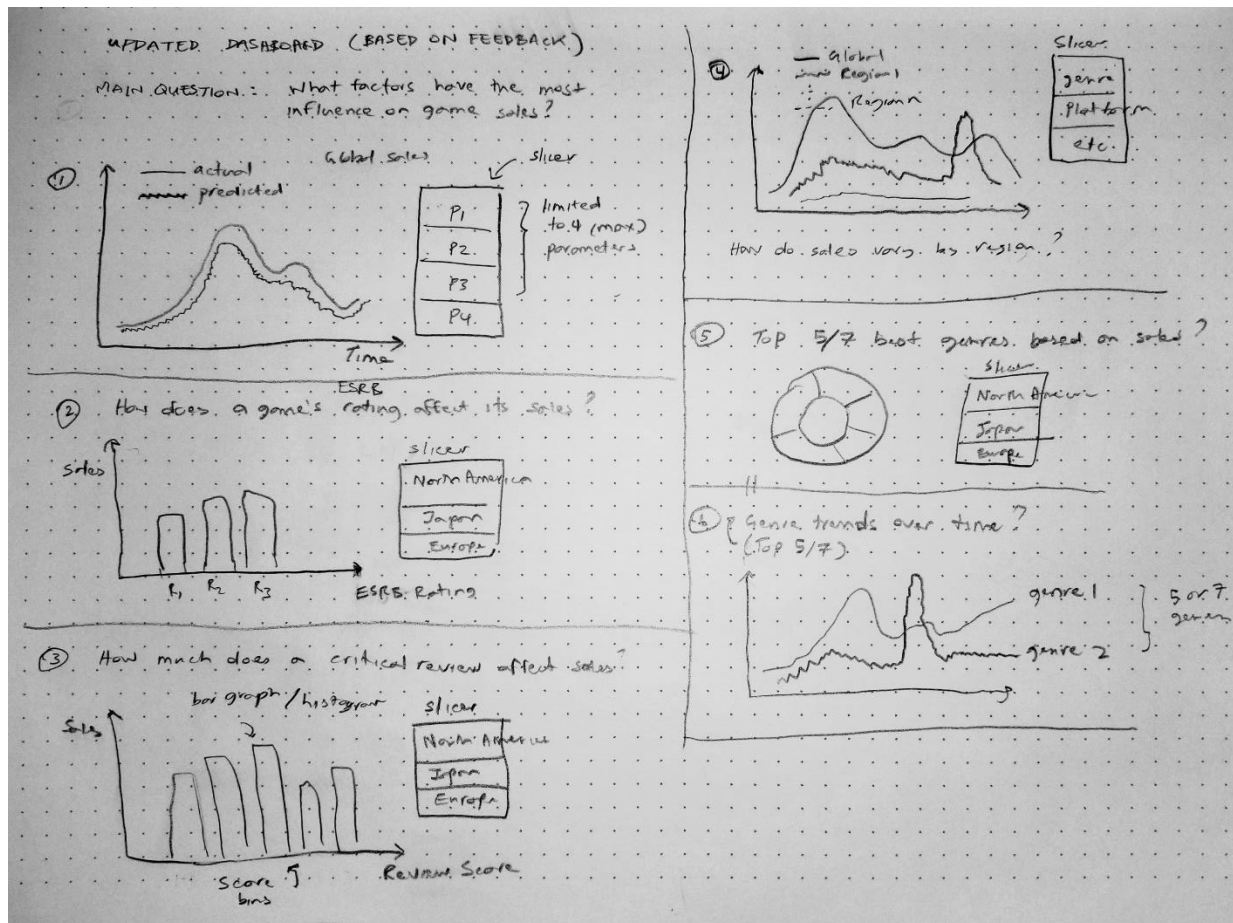 UPDATED DASHBOARD (BASED ON FEEDBACK)
MAIN QUESTION: What factors have the most
influence on game sales?
① Global sales
actual
predicted
slicer
P1
P2
P3
P4
limited
to 4 (max)
parameters
Time
ESRB
② How does a game's rating affect its sales?
Sales
R1 R2 R3
ESRB Rating
slicer
North America
Japan
Europe
③ How much does a critical review affect sales?
bar graph/histogram
Sales
Score
bins
Review Score
slicer
North America
Japan
Europe
④
Global
Region 1
Region n
Slicer
genre
Platform
etc.
How do sales vary by region?
⑤ Top 5/7 best genres based on sales?
Slicer
North America
Japan
Europe
⑥ Genre trends over time?
(Top 5/7)
genre 1
genre 2
5 or 7